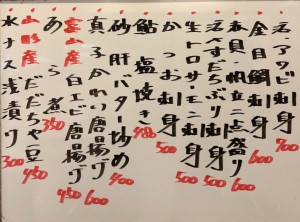 活アワビ刺身 700
金目鯛刺身 600
赤貝・帆立二点盛り 600
活すだちぶり刺身 500
生トロサーモン刺身 500
かつお刺身 500
鮎塩焼き 480
砂肝バター炒め 400
真子かれい唐揚げ 600
富山産 白エビ唐揚げ 450
あら煮
山形産 だだちゃ豆 450
水ナス浅漬け 300